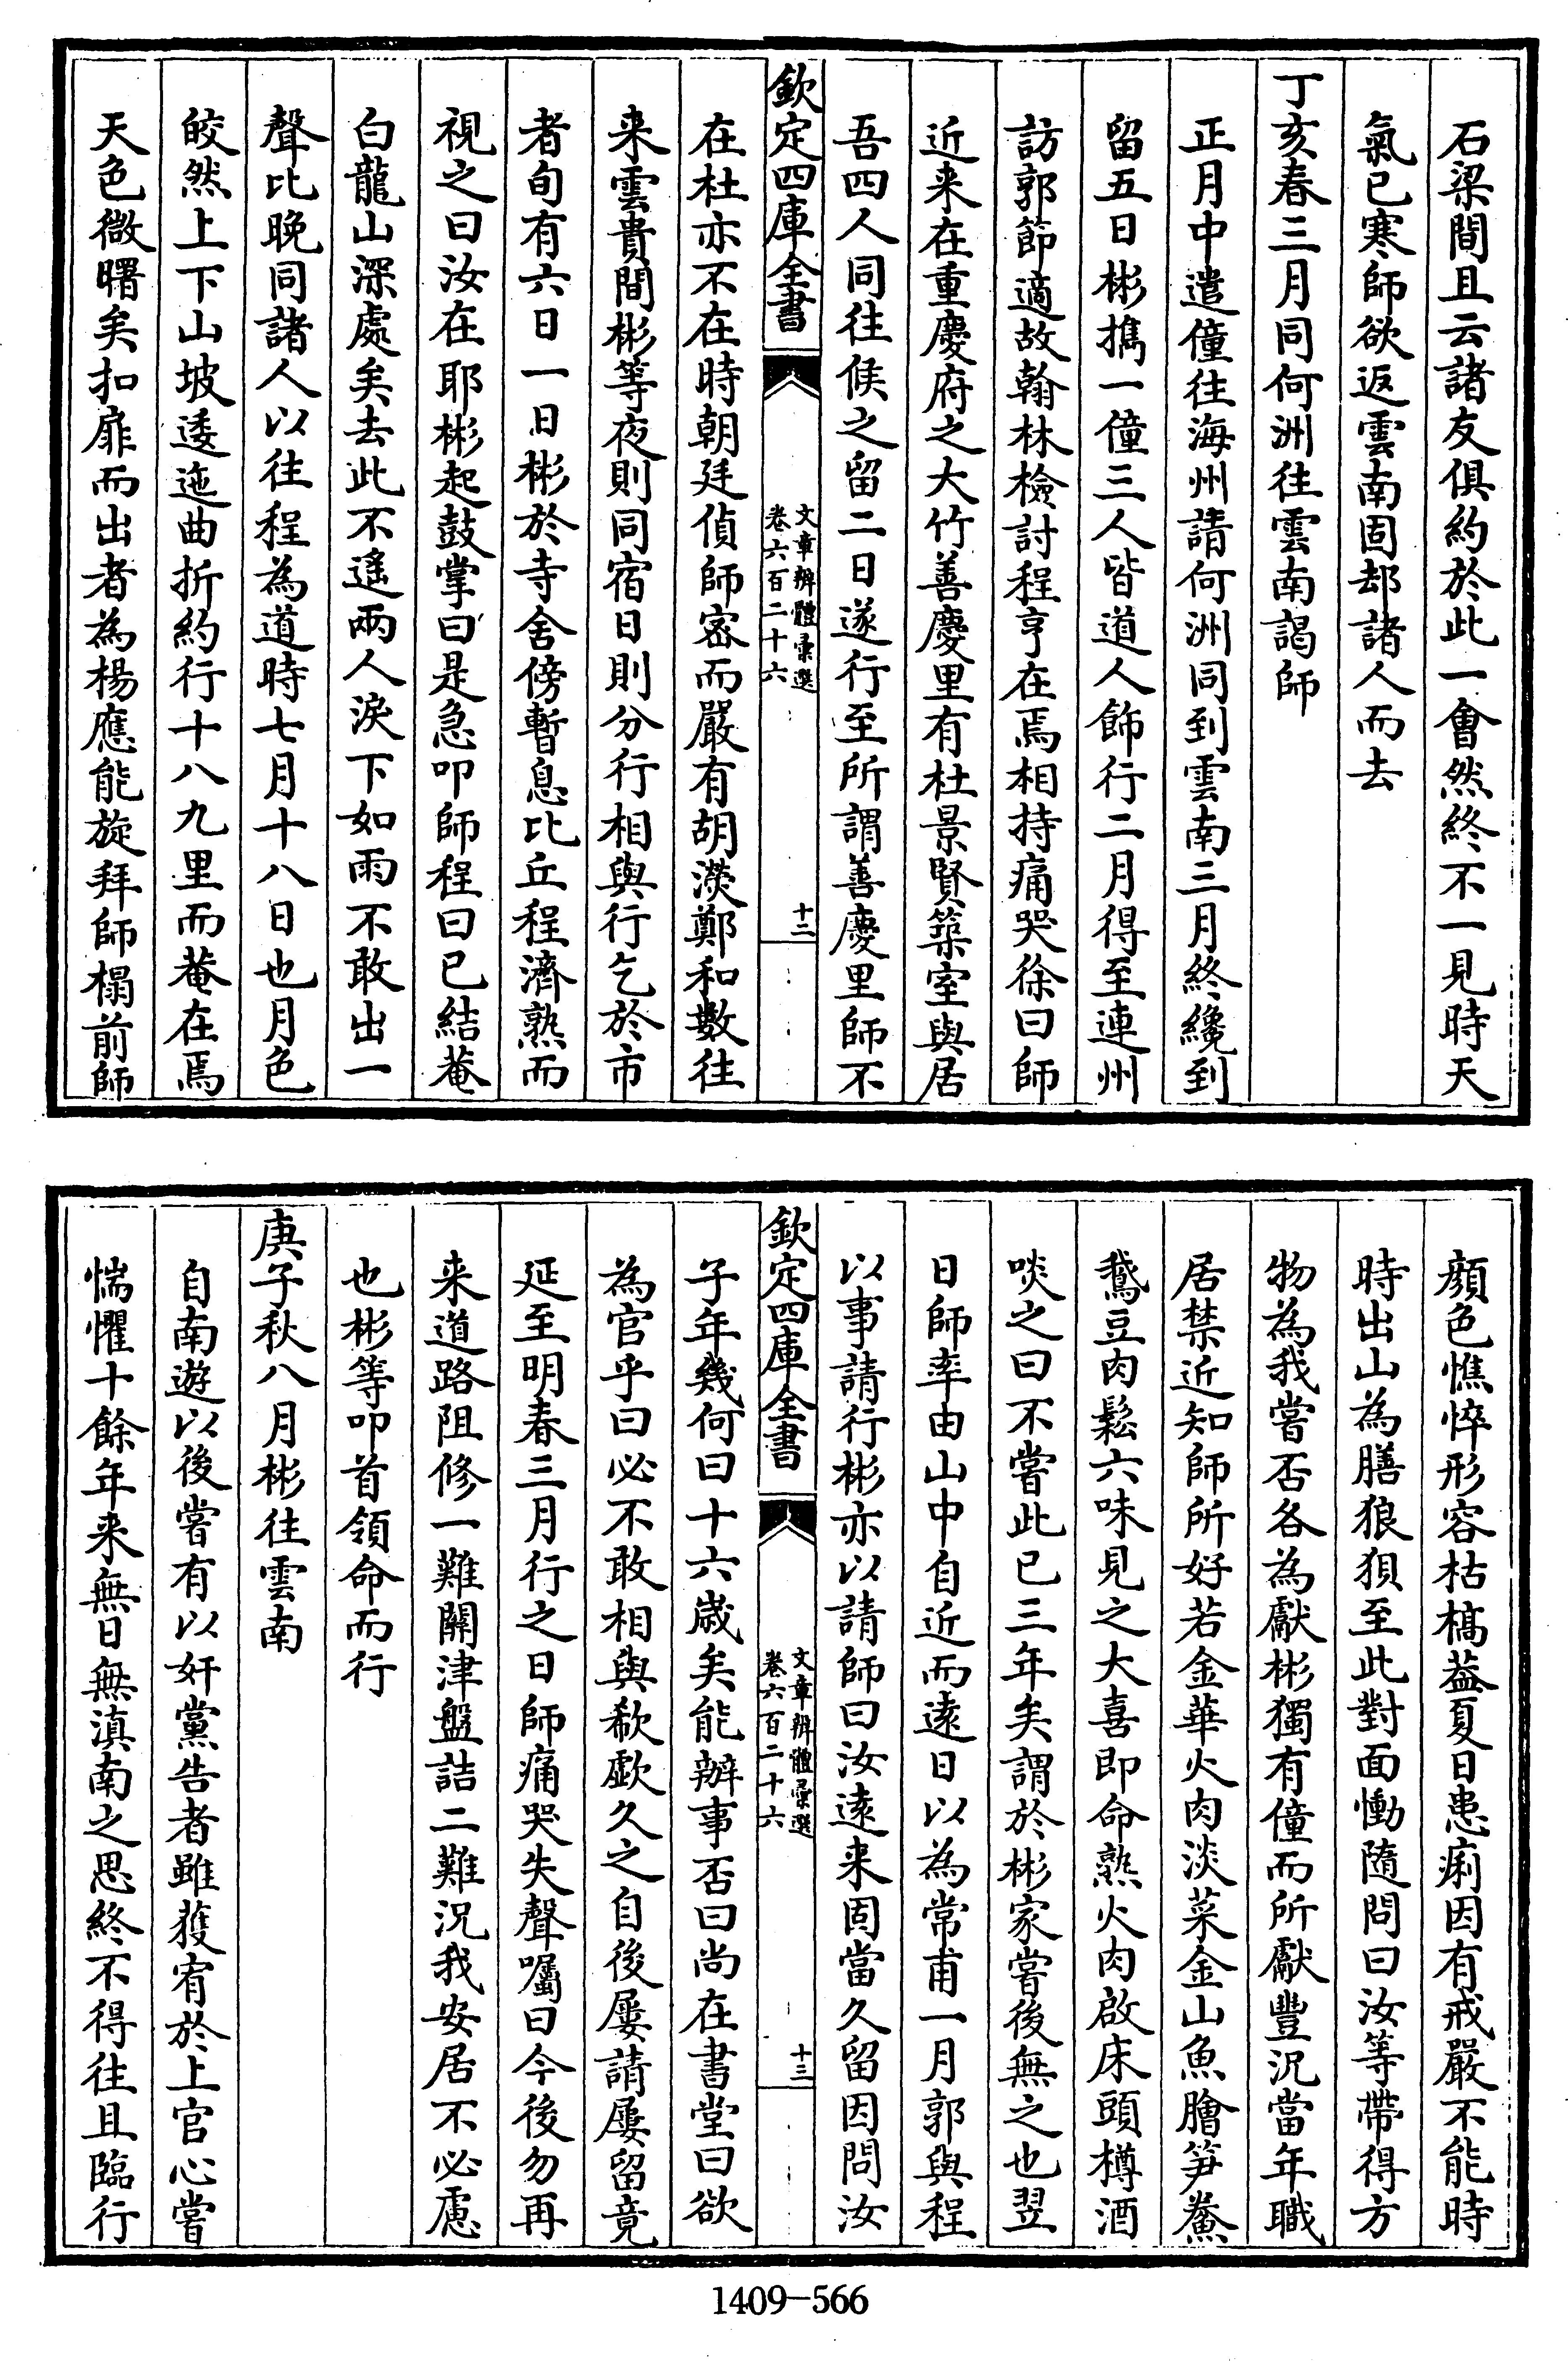 石梁間且云諸友俱約於此一會然終不一見時天
氣已寒師欲返雲南固却諸人而去
丁亥春三月同何洲往雲南謁師
正月中遣僮往海州請何洲同到雲南三月終纔到
留五日彬擕一僮三人皆道人飾行二月得至連州
訪郭節適故翰林檢討程亨在焉相持痛哭徐曰師
近来在重慶府之大竹善慶里有杜景賢築室與居
吾四人同往候之留二日遂行至所謂善慶里師不
欽定四庫全書
文章辨體彙選
卷六百二十六
十二
在杜亦不在時朝廷偵師宻而嚴有胡濙鄭和數往
来雲貴間彬等夜則同宿日則分行相與行乞於市
者旬有六日一日彬於寺舍傍暫息比丘程濟熟而
視之曰汝在耶彬起鼓掌曰是急叩師程曰已結菴
白龍山深處矣去此不遙兩人淚下如雨不敢出一
聲比晚同諸人以往程為道時七月十八日也月色
皎然上下山坡逶迤曲折約行十八九里而菴在焉
天色微曙矣扣扉而出者為楊應能旋拜師榻前師
顔色憔悴形容枯槁葢夏日患痢因有戒嚴不能時
時出山為膳狼狽至此對面慟隨問曰汝等帶得方
物為我嘗否各為獻彬獨有僮而所獻豐況當年職
居禁近知師所好若金華火肉淡菜金山魚膾笋鯗
鵞豆肉鬆六味見之大喜即命熟火肉啟床頭樽酒
啖之曰不嘗此已三年矣謂於彬家嘗後無之也翌
日師率由山中自近而遠日以為常甫一月郭與程
以事請行彬亦以請師曰汝遠来固當久留因問汝
欽定四庫全書
文章辨體彙選
卷六百二十六
十三
子年幾何曰十六歲矣能辦事否曰尚在書堂曰欲
為官乎曰必不敢相與欷歔久之自後屢請屢留竟
延至明春三月行之日師痛哭失聲囑曰今後勿再
来道路阻修一難關津盤詰二難況我安居不必慮
也彬等叩首領命而行
庚子秋八月彬往雲南
自南遊以後嘗有以奸黨告者雖獲宥於上官心嘗
惴懼十餘年来無日無滇南之思終不得往且臨行
1409-566